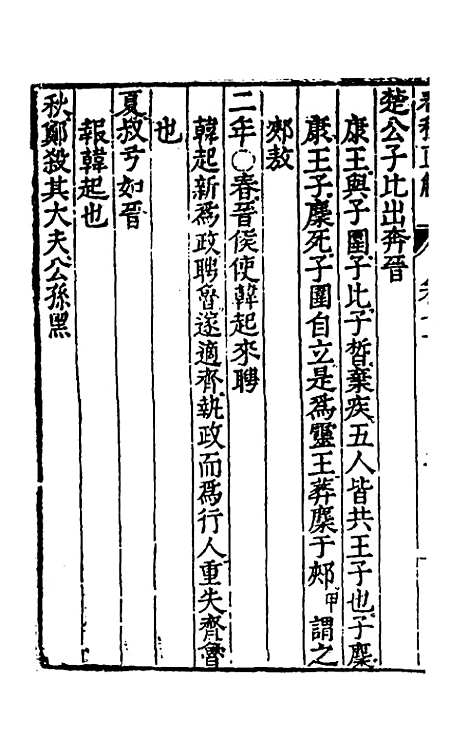 楚公子比出奔晉
康王與子圍子比子晳棄疾五人皆共王子也子麇
康王子麇死子圍自立是為靈王葬麇于郟甲謂之
郟敖
二年〇春晉侯使韓起來聘
韓起新為政聘魯遂適齊執政而為行人重失齊魯
也
夏叔弓如晉
報韓起也
秋鄭殺其大夫公孫黑